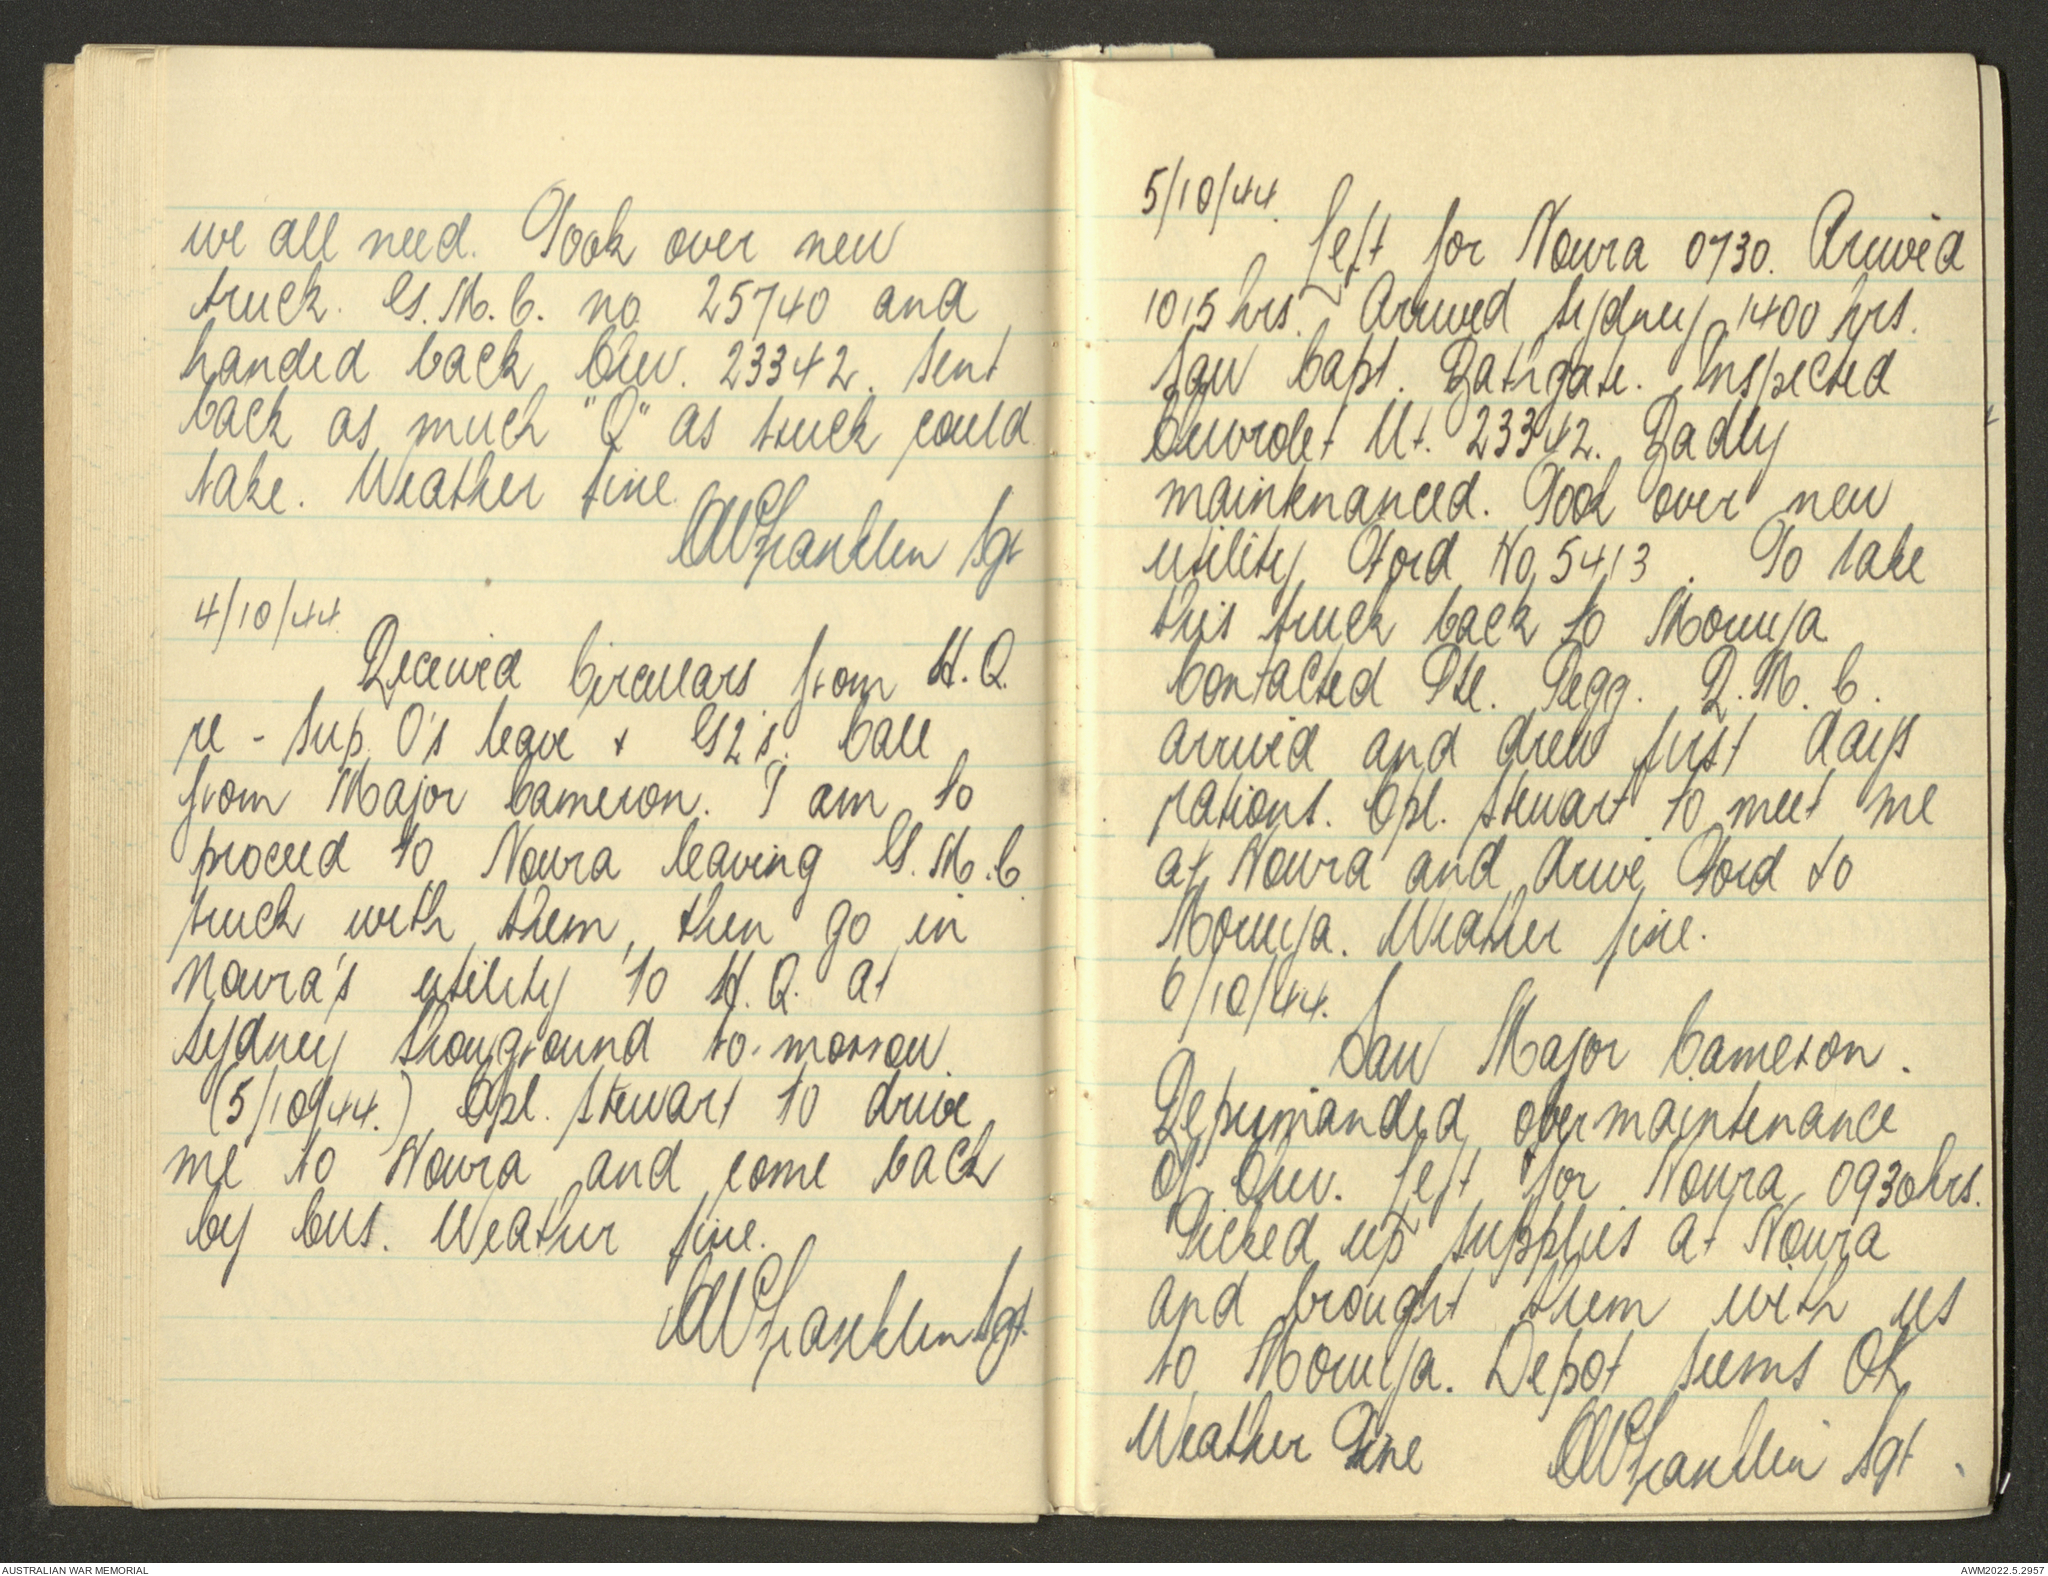 we all need. Took over new
truck. G.M.C. no 25740 and
handed back Chev. 23342. Sent
back as much "Q" as truck could
take. Weather fine.
AW Franklin Sgt
4/10/44.
Received Circulars from H.Q.
re - Sup. O's leave & G2's. Call
from Major Cameron. I am to
proceed to Nowra leaving G.M.C.
truck with them, then go in
Nowra's utility to H.Q. at
Sydney Showground to-morrow
(5/10/44.) Cpl. Stewart to drive
me to Nowra and come back
by bus. Weather fine.
AW Franklin Sgt.
5/10/44.
Left for Nowra 0730. Arrived
1015 hrs. Arrived Sydney 1400 hrs.
Saw Capt. Bathgate. Inspected
Chevrolet Ut. 23342. Badly
maintenanced. Took over new
utility Ford No 5413. To take
this truck back to Moruya
Contacted Pte. Pegg. R.M.C.
arrived and drew first days
rations. Cpl. Stewart to meet me
at Nowra and drive Ford to
Moruya. Weather fine.
6/10/44.
Saw Major Cameron.
Reprimanded over maintenance
of Chev. Left for Nowra 0930hrs.
Picked up supplies at Nowra
and brought them with us
to Moruya. Depot seems OK
Weather Fine AW Franklin Sgt
AUSTRALIAN WAR MEMORIAL
AWM2022.5.2957